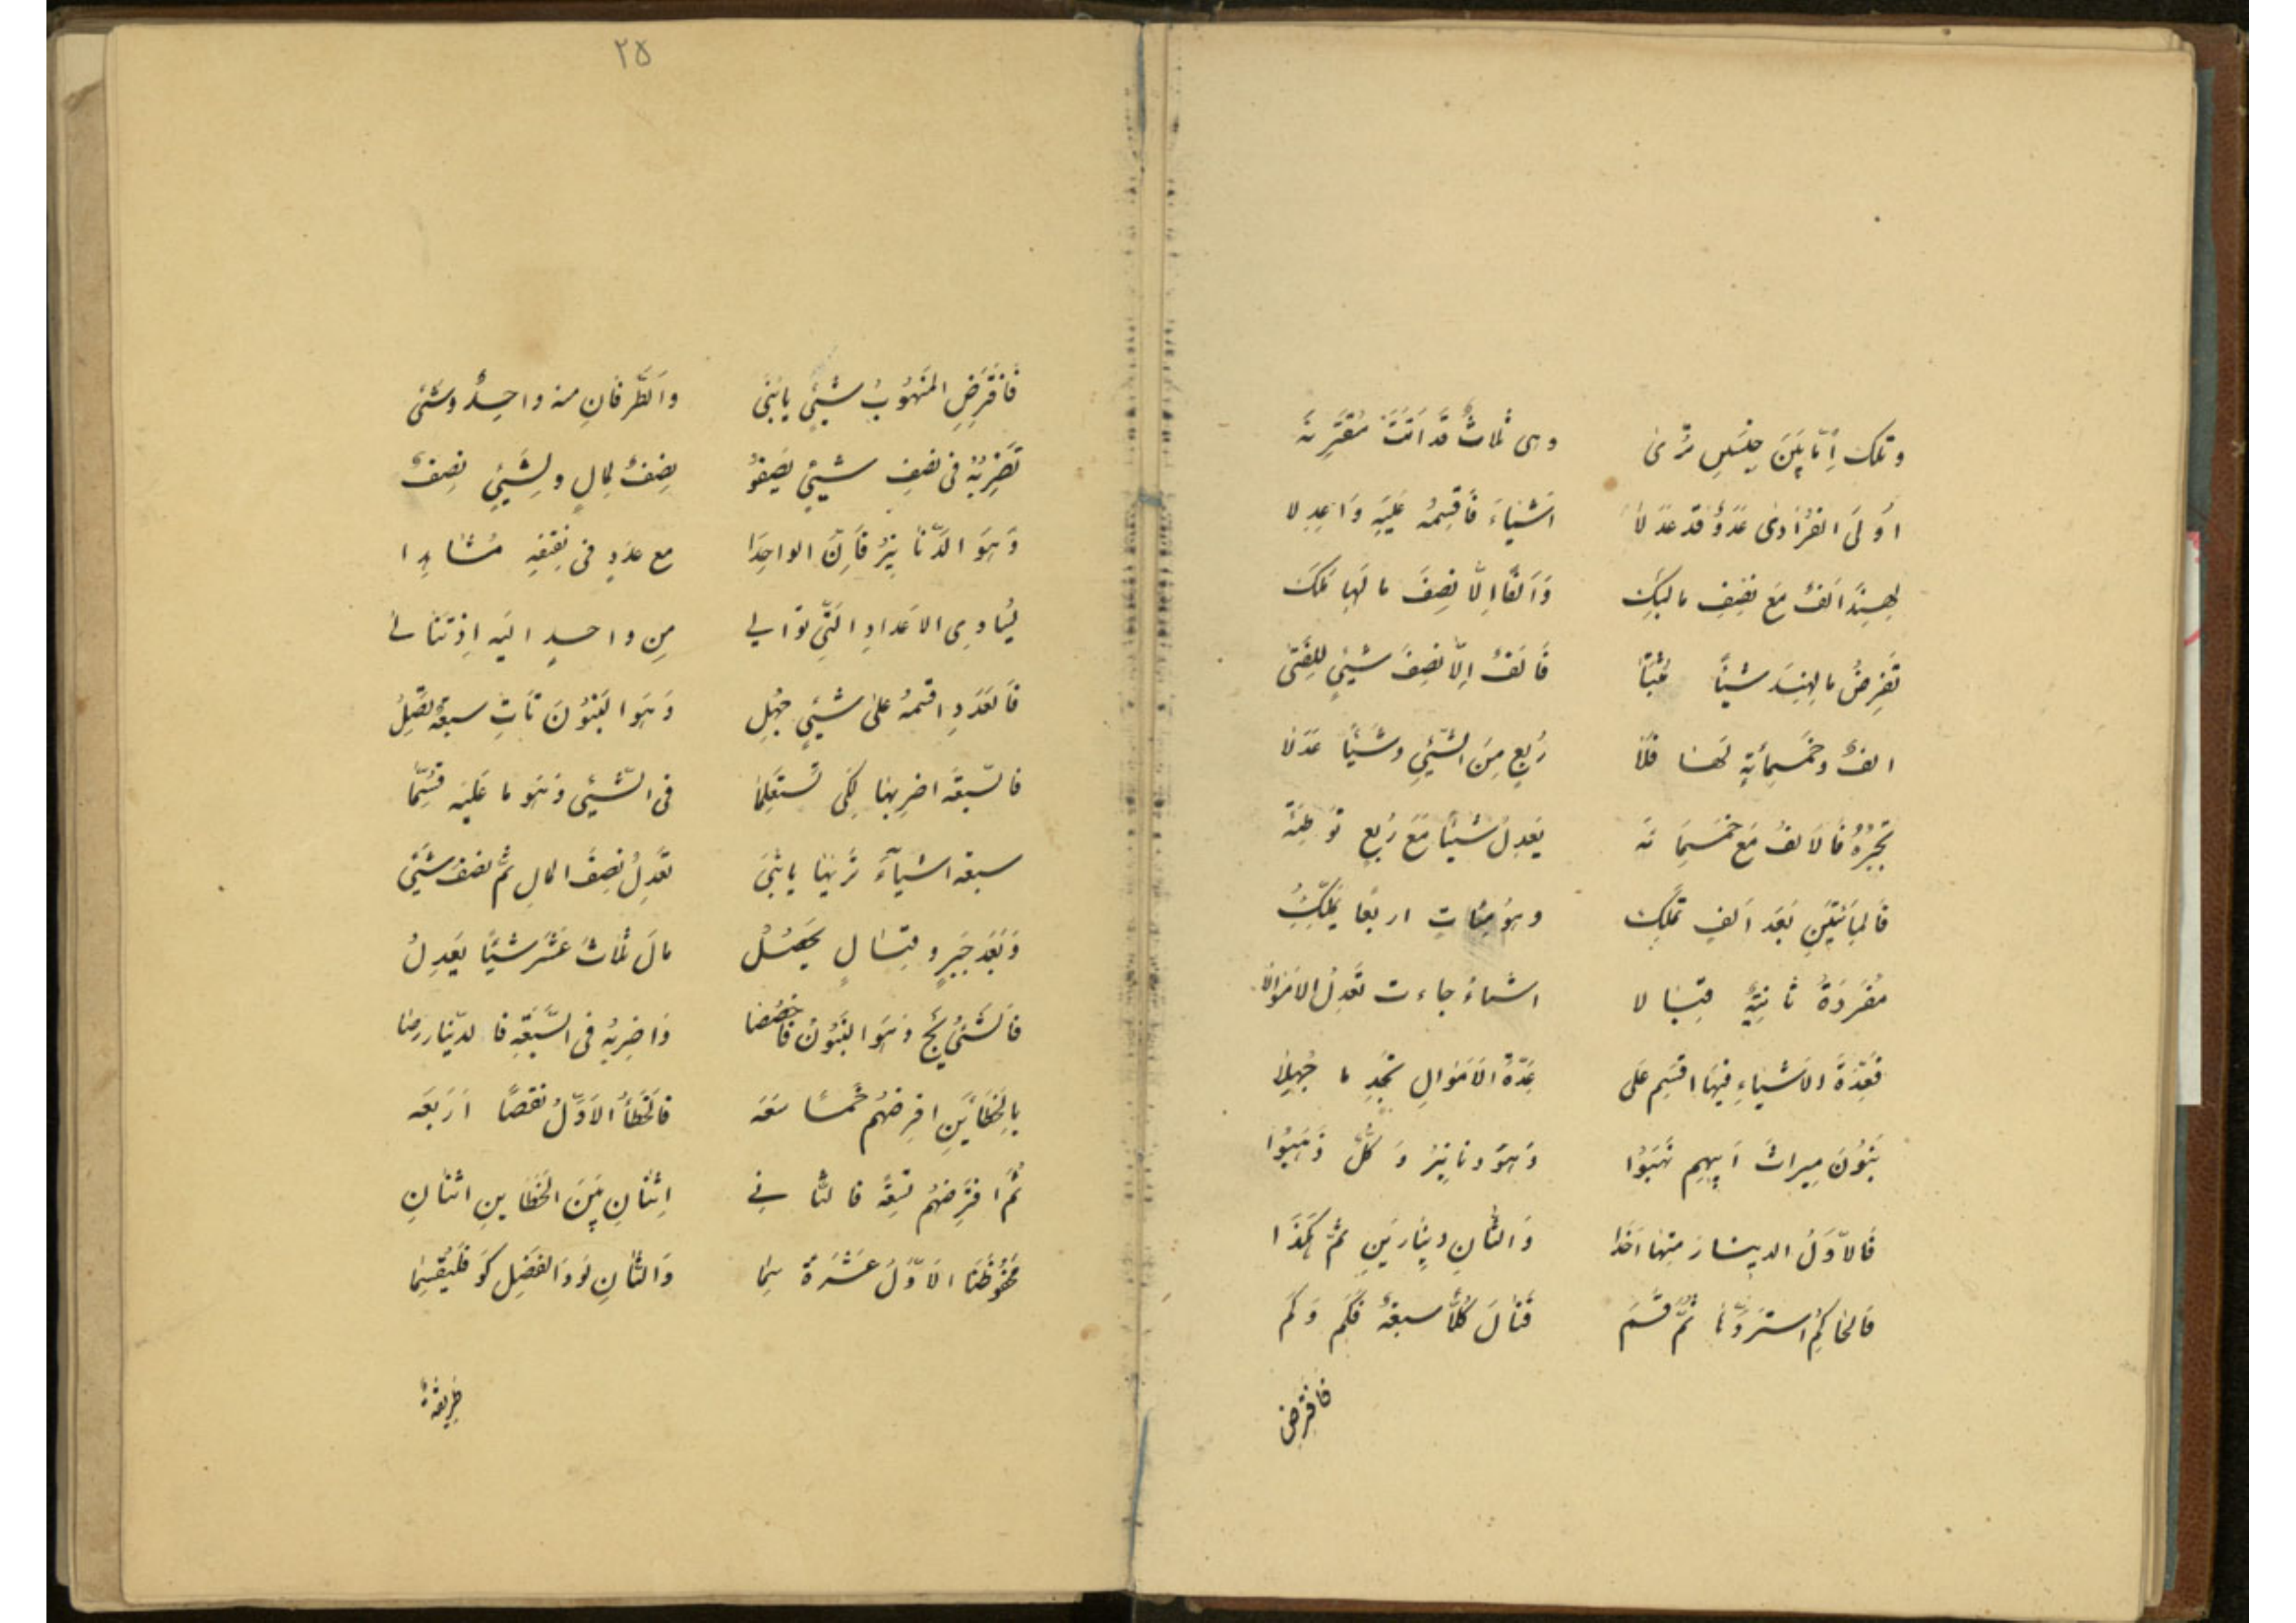 وتلك إمّا بين جنسين ترى وهى ثلاث قد اتت مقترنة
اولى الفرادى عدد قد عدلا اشياء فاقسمه عليه واعدلا
لهند الف مع نصف مالبكر والفا الا نصف ما لها
تفرض ما لهند شيئا فالف الا نصف شيئ للفتى
الف وخمسمأية لها فلا ربع من الشيئ وشيئا عدلا
تجبره فالالف مع خمسمائه يعدل شيئا مع ربع توطئة
فالمأتين بعد الف تملك وهو مئات اربعا يملك
مفردة ثانية قبالا اشياء جاءت تعدل الاموالا
فعدة الاشياء فيها اقسم على عدة الاموال تجد ما جهلا
بنون ميراث ابيهم نهبوا وهو دنانير وكل ذهبوا
فالاول الدينار منها اخذا والثان دينارين ثم هكذا
فالحاكم استرد ثم قسم فنال كلا سبعة فكم وكم
فافرض
٢٥
فافرض المنهوب شيئ يابنى والطرفان منه واحد وشئ
تضربه فى نصف شيئ يصفو نصف لمال ولشيئ نصف
وهو الدنانير فان الواحدا مع عدد فى نصفه
يساوى الاعداد التى توالى من واحد اليه اذ
فالعدد اقسمه على شيئ جهل وهو البنون تات سبعة تصل
فالسبعة اضربها لكى تستعلما فى الشيئ وهو ما عليه قسما
سبعة اشياء ترىها يابنى تعدل نصف المال ثم نصف شئ
وبعد جبر وقبال يحصل مال ثلاث عشر شيئا يعدل
فالشئ يج وهو البنون واضربه فى السبعة فالدينار
بالخطأين افرضهم خمسا سعه فالخطأ الاول نقصا اربعه
ثم افرضهم تسعة فالثانى اثنان بين الخطاين اثنان
محفوظنا الاول عشرة والثان لو والفضل كو فليقسما
طريقة